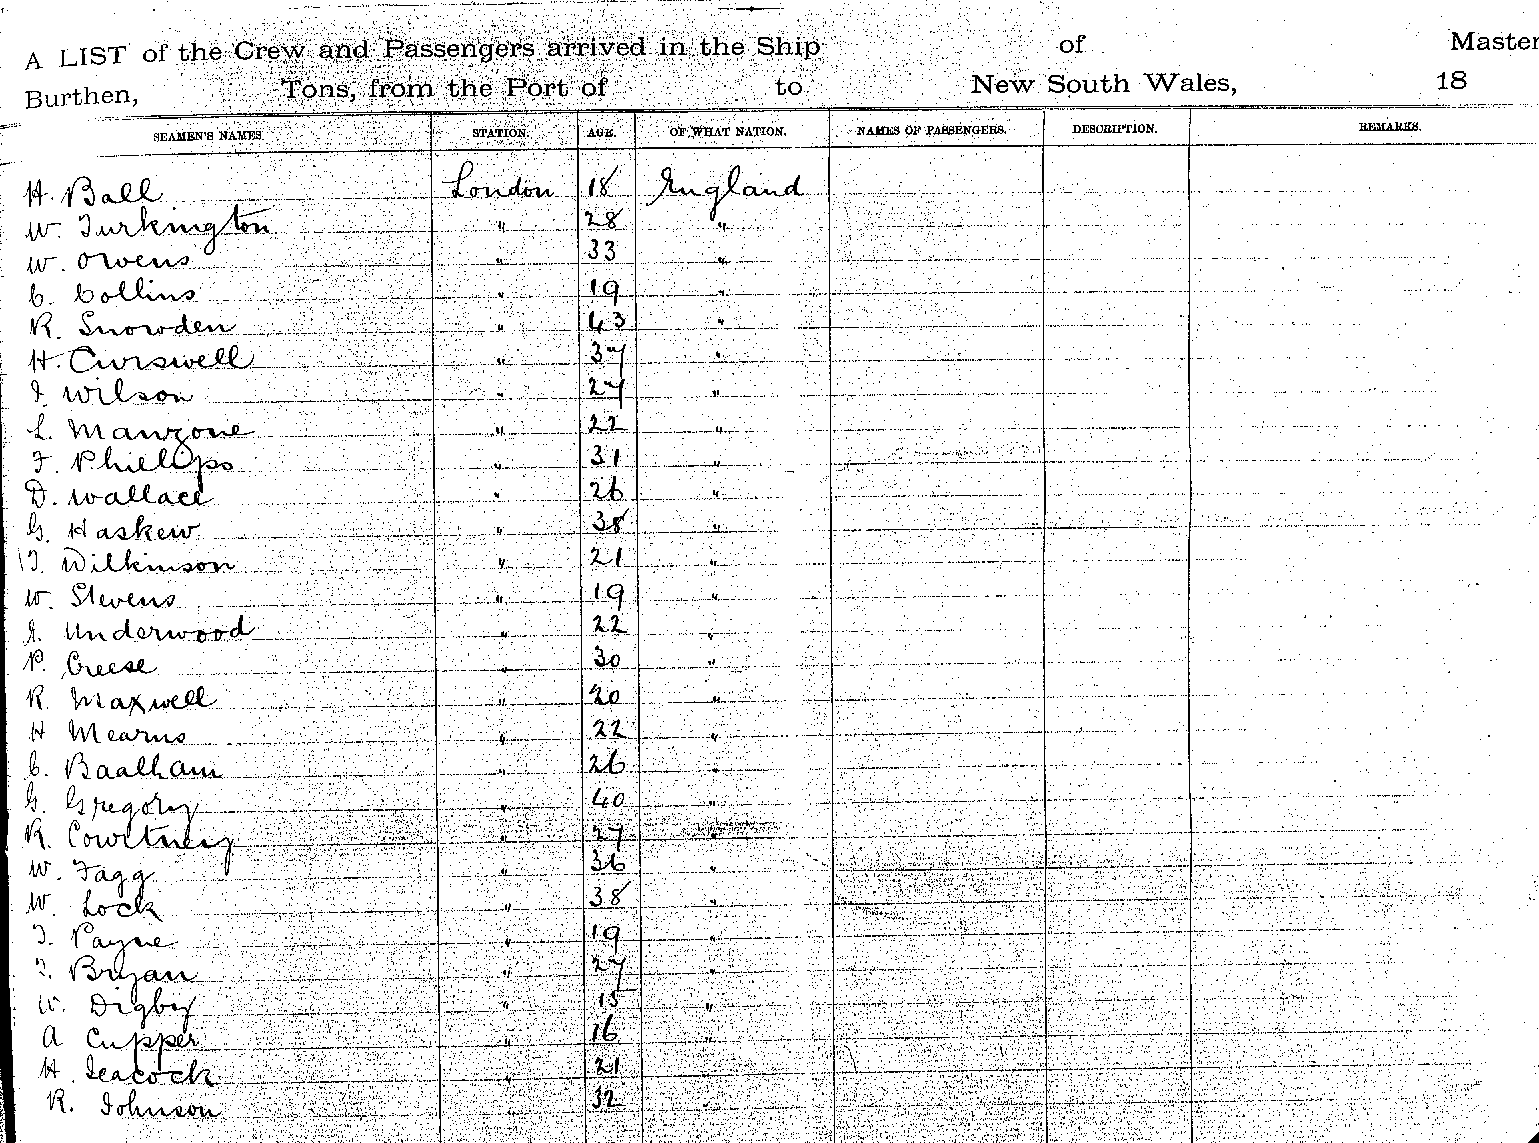 A LIST of the Crew and Passengers arrived in the Ship of Master
Burthen, Tons, from the Port of to New South Wales, 18
SEAMEN'S NAMES. STATION. AGE. OF WHAT NATION. NAMES OF PASSENGERS. DESCRIPTION. REMARKS.
H. Ball London 18 England
W. Turkington " 28 "
W. Owens " 33 "
C. Collins " 19 "
R. Snowden " 43 "
H. Curswell " 37 "
J. Wilson " 27 "
L. Manzone " 22 "
F. Phillips " 31 "
D. Wallace " 26 "
G. Haskew " 38 "
T. Wilkinson " 21 "
W. Stevens " 19 "
J. Underwood " 22 "
P. Creese " 30 "
R. Maxwell " 20 "
H Mearns " 22 "
C. Baalham " 26 "
G. Gregory " 40 "
R. Courtney " 27 "
W. Fagg " 36 "
W. Lock " 38 "
T. Payne " 19 "
T. Bryan " 27 "
W. Digby " 15 "
A Cupper " 16 "
H. Seacock " 21 "
R. Johnson 32